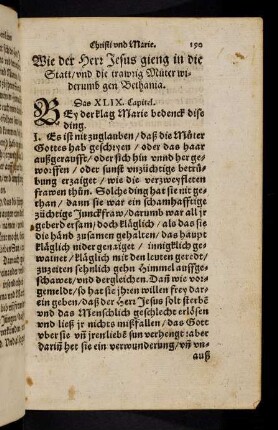 Christi vnd Marie. 190
Wie der Herr Jesus gieng in die
Statt/vnd die trawrig Můter wi-
derumb gen Bethania.
Das XLIX. Capitel.
BEy der klag Marie bedenck dise
ding.
I. Es ist nit zuglauben/daß die Můter
Gottes hab geschryen/oder das haar
außgeraufft/oder sich hin vnnd her ge-
worffen/oder sunst vnzüchtige betrü-
bung erzaiget/wie die verzweyfleten
frawen thůn. Solche ding hat sie nit ge-
than/dann sie war ein schamhafftige
züchtige Junckfraw/darumb war all jr
geberd ersam/doch kläglich/als das sie
die händ zusamen gehalten/das haupt
kläglich nider genaiget/innigklich ge-
wainet/kläglich mit den leuten geredt/
zuzeiten sehnlich gehn Himmel auffge-
schawet/vnd dergleichen. Dañ wie vor-
gemeldt/so hat sie jhren willen frey dar-
ein geben/daß der Herr Jesus solt sterbē
vnd das Menschlich geschlecht erlösen
vnd ließ jr nichts mißfallen/das Gott
vber sie vñ jren liebsten sun verhengt: aber
darüm het sie ein verwunderung/vñ vn-
auß